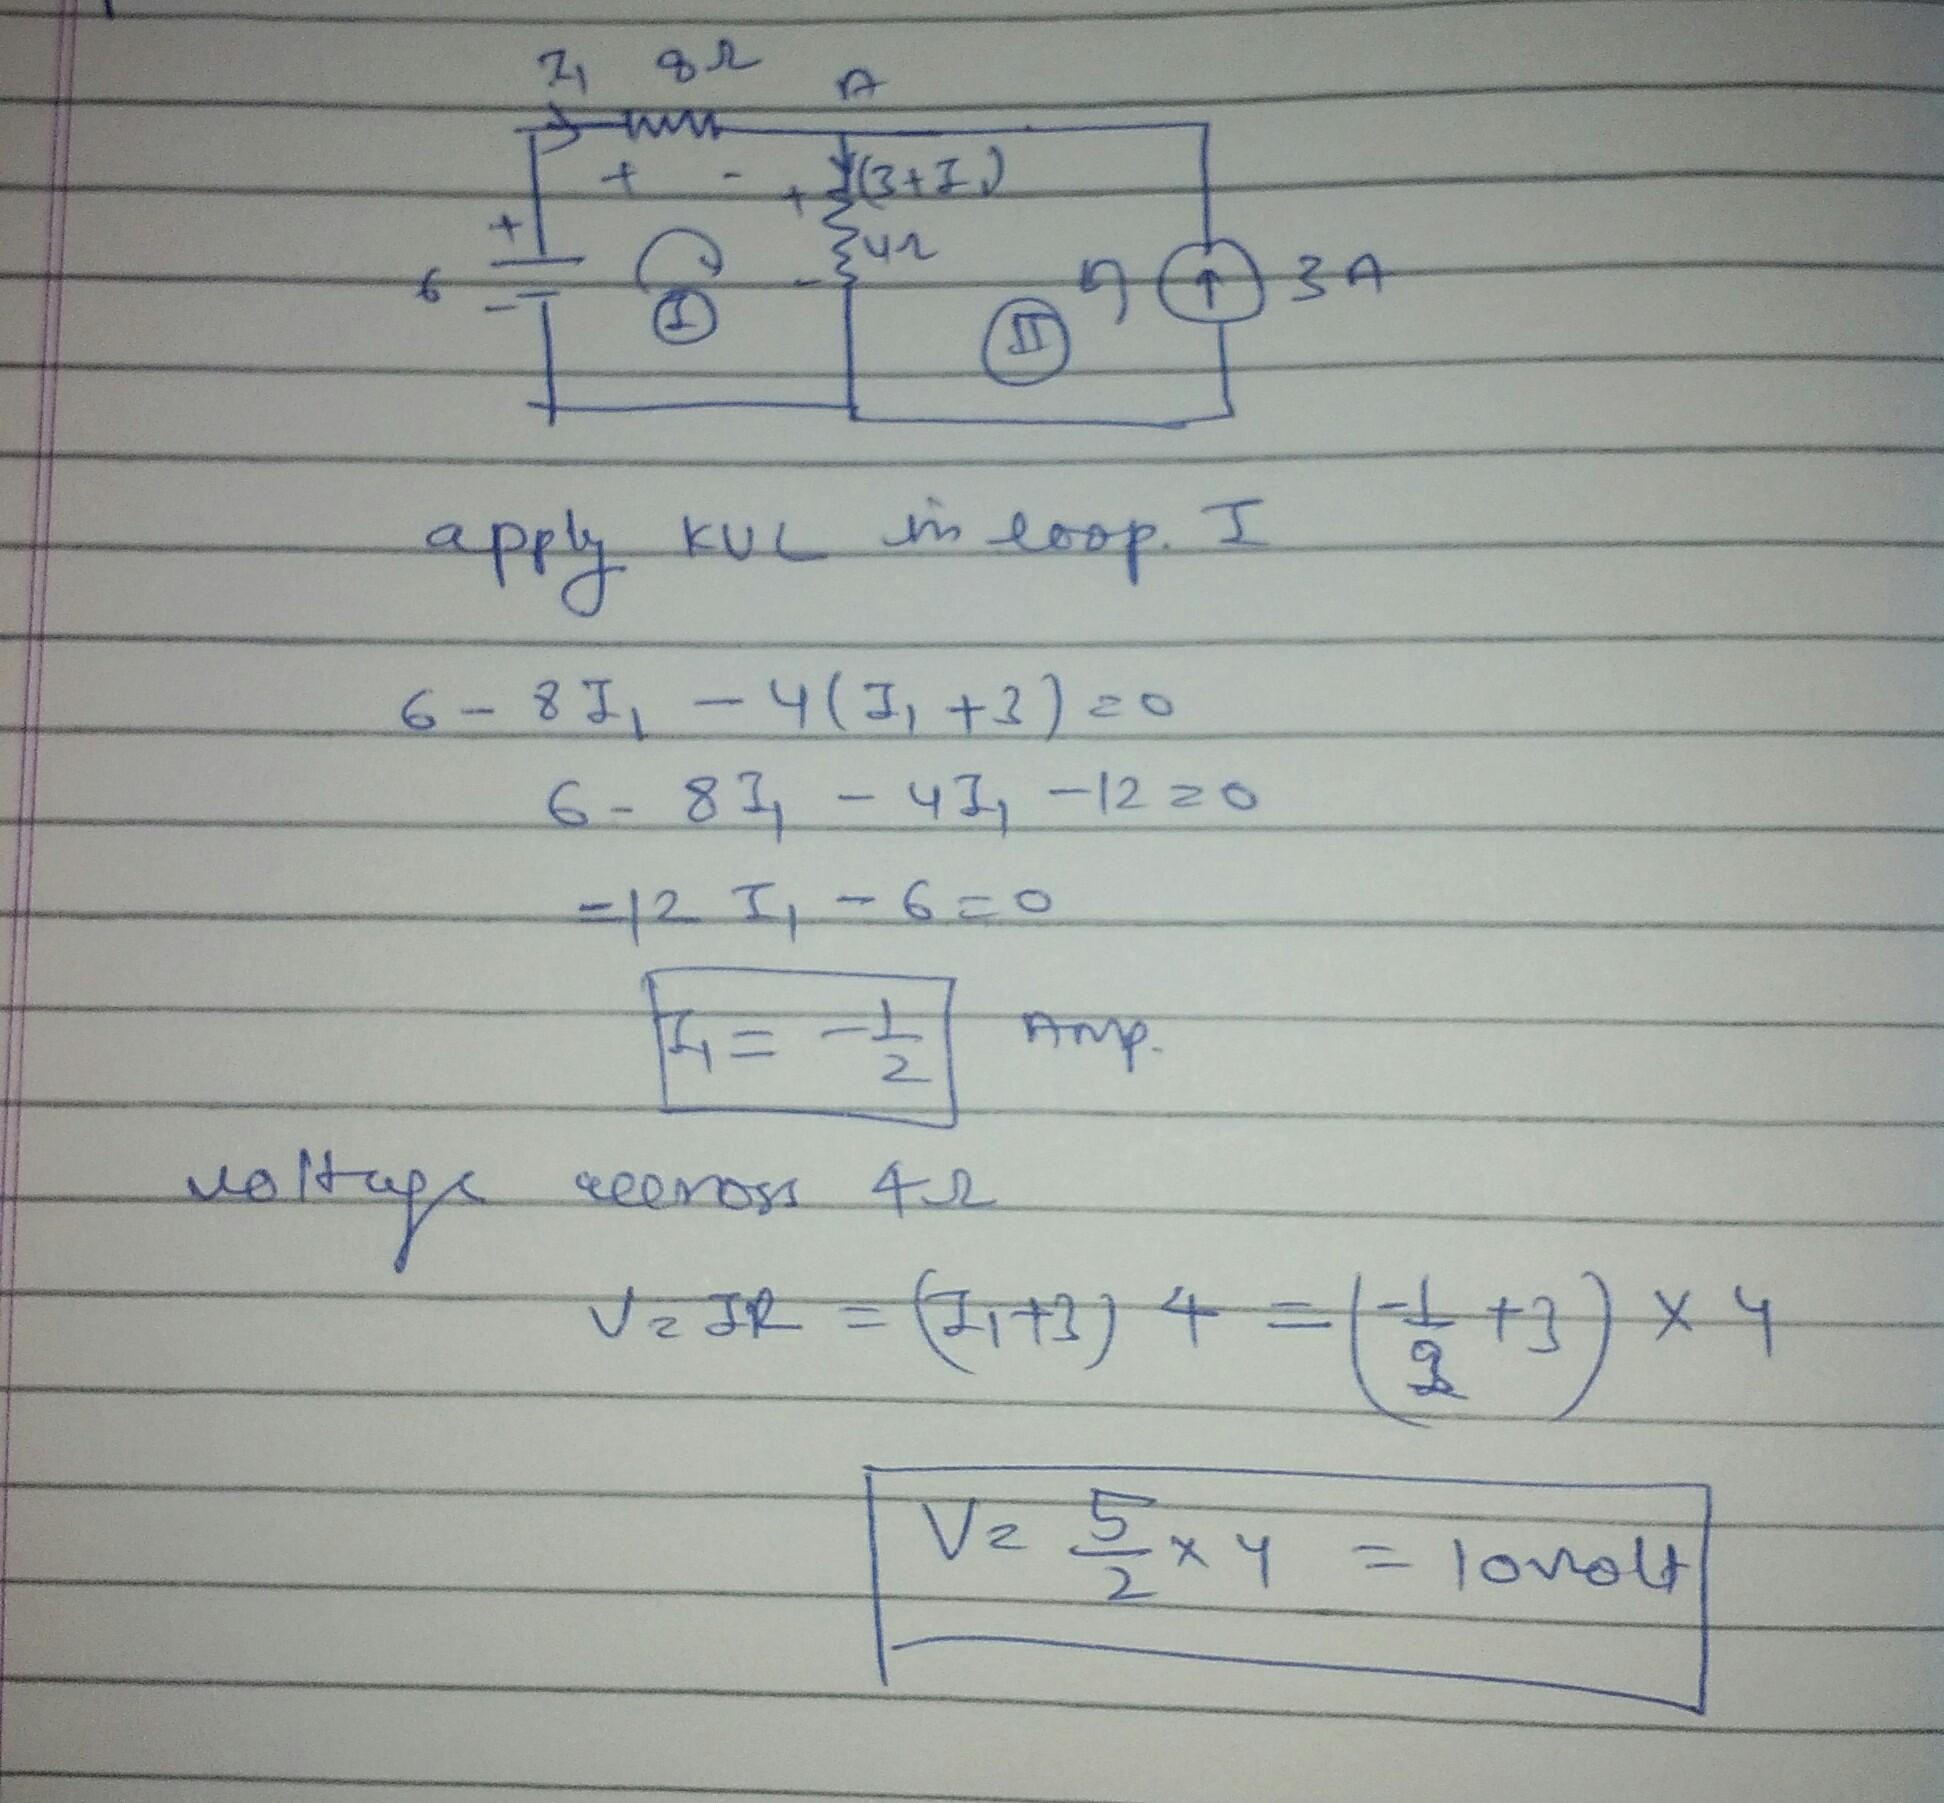 I₁ 8Ω A
+ - + (3+I₁)
+ 4Ω
6 - - 3A
I II
apply KVL in loop. I
6 - 8I₁ - 4(I₁ + 3) = 0
6 - 8I₁ - 4I₁ - 12 = 0
-12 I₁ - 6 = 0
I₁ = -1/2 Amp.
voltage accross 4Ω
V = IR = (I₁+3) 4 = (-1/2 + 3) × 4
V = 5/2 × 4 = 10 volt